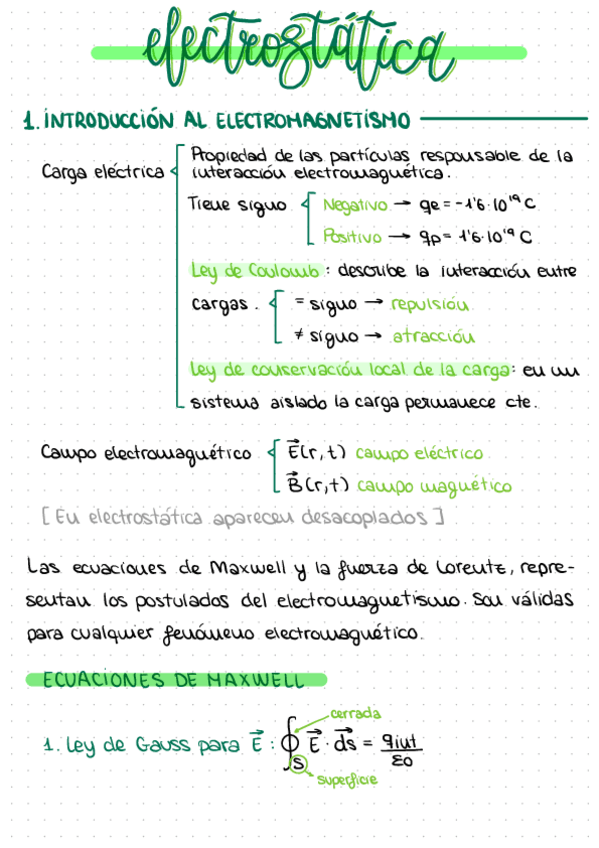 electrostática
1. INTRODUCCIÓN AL ELECTROMAGNETISMO
Carga eléctrica
Propiedad de las partículas responsable de la
interacción electromagnética.
Tiene signo
Negativo → qe = -1'6·10¹⁹ C
Positivo → qp = 1'6·10¹⁹ C
Ley de Coulomb: describe la interacción entre
cargas.
= signo → repulsión
≠ signo → atracción
Ley de conservación local de la carga: en un
sistema aislado la carga permanece cte.
Campo electromagnético
E⃗(r,t) campo eléctrico
B⃗(r,t) campo magnético
[En electrostática aparecen desacoplados]
Las ecuaciones de Maxwell y la fuerza de Lorentz, repre-
sentan los postulados del electromagnetismo. Son válidas
para cualquier fenómeno electromagnético.
ECUACIONES DE MAXWELL
cerrada
1. Ley de Gauss para E⃗ : ∮S E⃗ · ds⃗ = qint/ε0
superficie